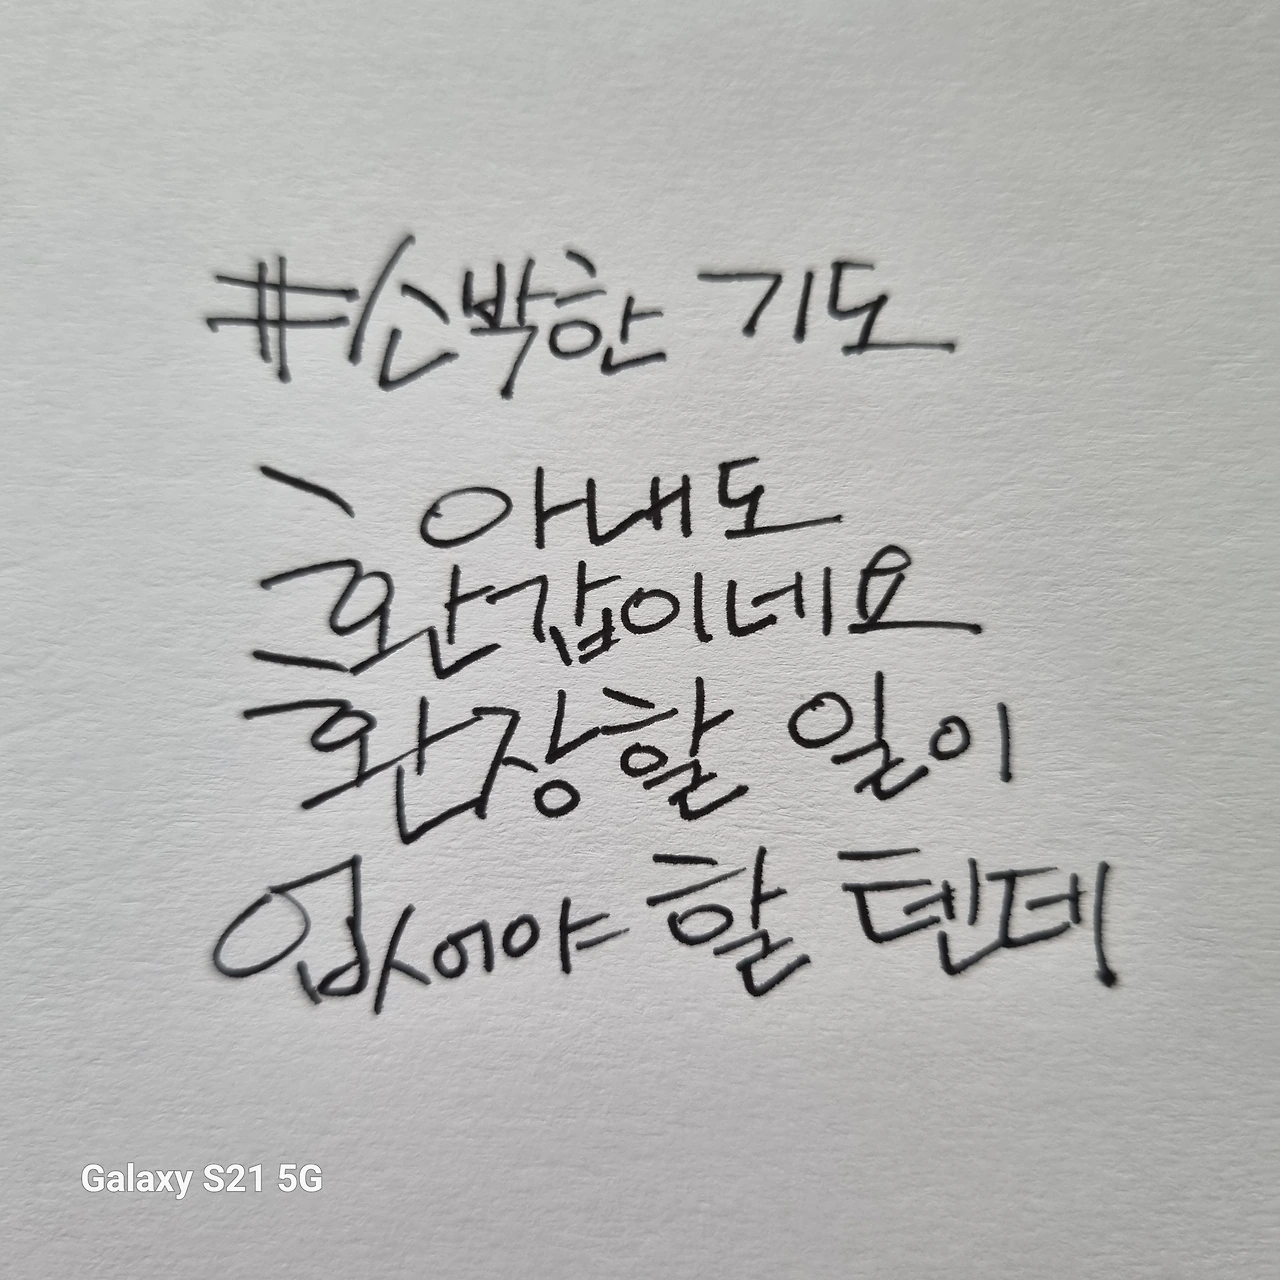 #소박한 기도
아내도
환갑이네요
환장할 일이
없어야 할 텐데
Galaxy S21 5G